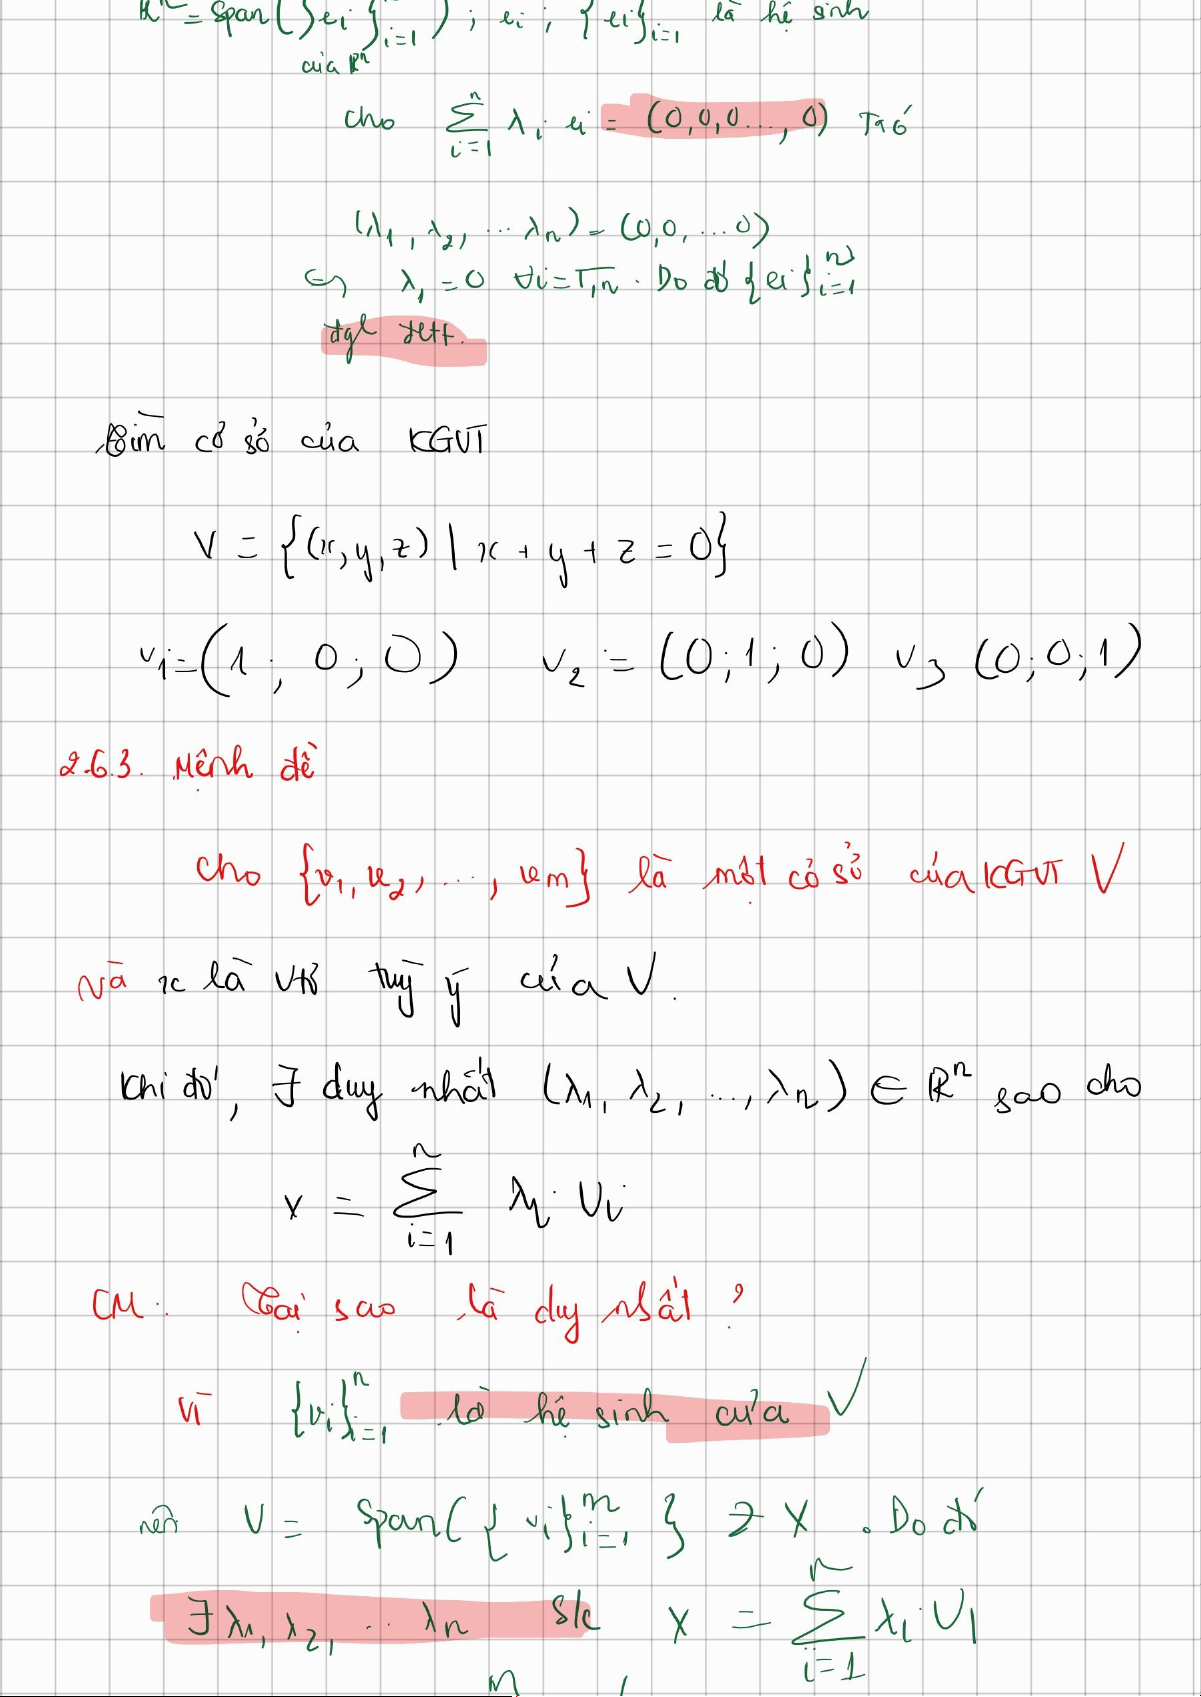 Rⁿ = span({ei}ⁿᵢ₌₁) ; ei ; {ei}ᵢ₌₁ là hệ sinh
của Rⁿ
cho ∑ⁿᵢ₌₁ λi ei = (0,0,0...,0) Ta có
(λ₁, λ₂, ... λn) = (0,0,...0)
⇔ λ₁ = 0 ∀i = 1,n . Do đó {ei}ⁿᵢ₌₁
đgl đltt.
Tìm cơ sở của KGVT
V = {(x,y,z) | x + y + z = 0}
v₁ = (1; 0; 0) v₂ = (0; 1; 0) v₃ (0; 0; 1)
2.6.3. Mệnh đề
cho {v₁, v₂, ..., vm} là một cơ sở của KGVT V
Và x là vtơ tuỳ ý của V.
Khi đó, ∃ duy nhất (λ₁, λ₂, ..., λn) ∈ Rⁿ sao cho
x = ∑ⁿᵢ₌₁ λi Vi
CM: Tại sao là duy nhất ?
Vì {vi}ⁿᵢ₌₁ là hệ sinh của V
nên V = Span({vi}ⁿᵢ₌₁} ∋ x . Do đó
∃ λ₁, λ₂, ... λn s/c x = ∑ⁿᵢ₌₁ λi V₁